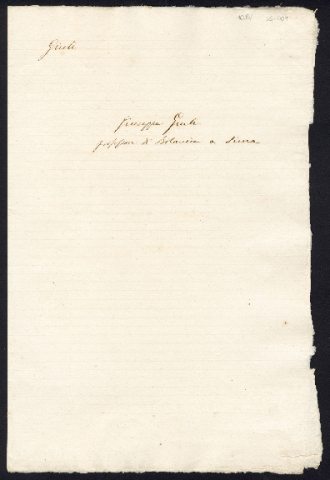 Giuli
Giuseppe Giuli
professore di Botanica a Siena